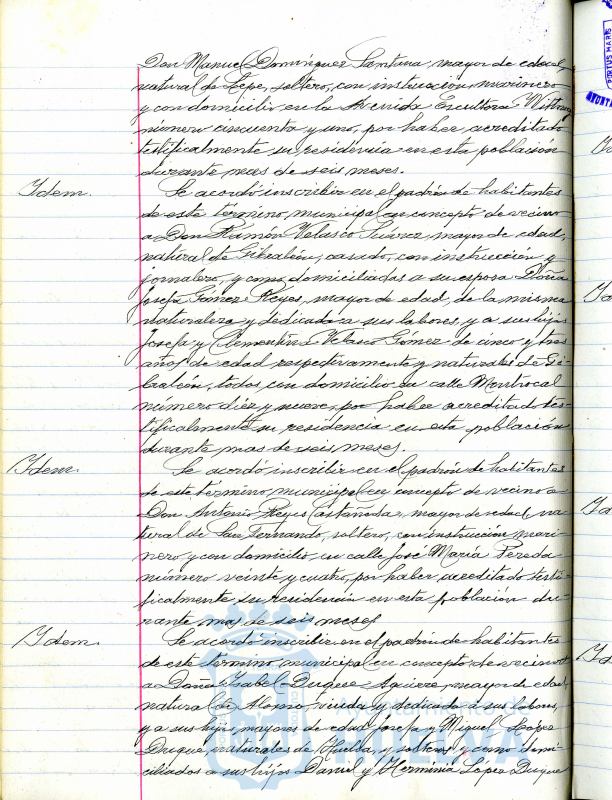 Don Manuel Domínguez Santana, mayor de edad,
natural de Lepe, soltero, con instrucción, marinero
y con domicilio en la Avenida Escultora Withney
número cincuenta y uno, por haber acreditado
testificalmente su residencia en esta población
durante mas de seis meses.
Idem. Se acordó inscribir en el padrón de habitantes
de este término municipal en concepto de vecino
a Don Ramón Velasco Suárez, mayor de edad,
natural de Gibraleón, casado, con instrucción y
jornalero, y como domiciliadas a su esposa Doña
Josefa Gómez Reyes, mayor de edad, de la misma
naturaleza y dedicada a sus labores, y a sus hijas
Josefa y Clementina Velasco Gómez de cinco y tres
años de edad respectivamente y naturales de Gi-
braleón, todos con domicilio en calle Montrocal
número diez y nueve, por haber acreditado tes-
tificalmente su residencia en esta población
durante mas de seis meses.
Idem. Se acordó inscribir en el padrón de habitantes
de este término municipal en concepto de vecino a
Don Antonio Reyes Castañeda, mayor de edad, na-
tural de San Fernando, soltero, con instrucción mari-
nero y con domicilio en calle José María Pereda
número veinte y cuatro, por haber acreditado testi-
ficalmente su residencia en esta población du-
rante mas de seis meses
Idem. Se acordó inscribir en el padrón de habitantes
de este término municipal en concepto de vecino
a Doña Isabel Duque Aguirre, mayor de edad,
natural de Alosno, viuda y dedicada a sus labores,
y a sus hijos, mayores de edad Josefa y Miguel López
Duque, naturales de Huelva, y solteros y como domi-
ciliados a sus hijos Daniel y Herminia López Duque
Ayuntamiento de
HUELVA